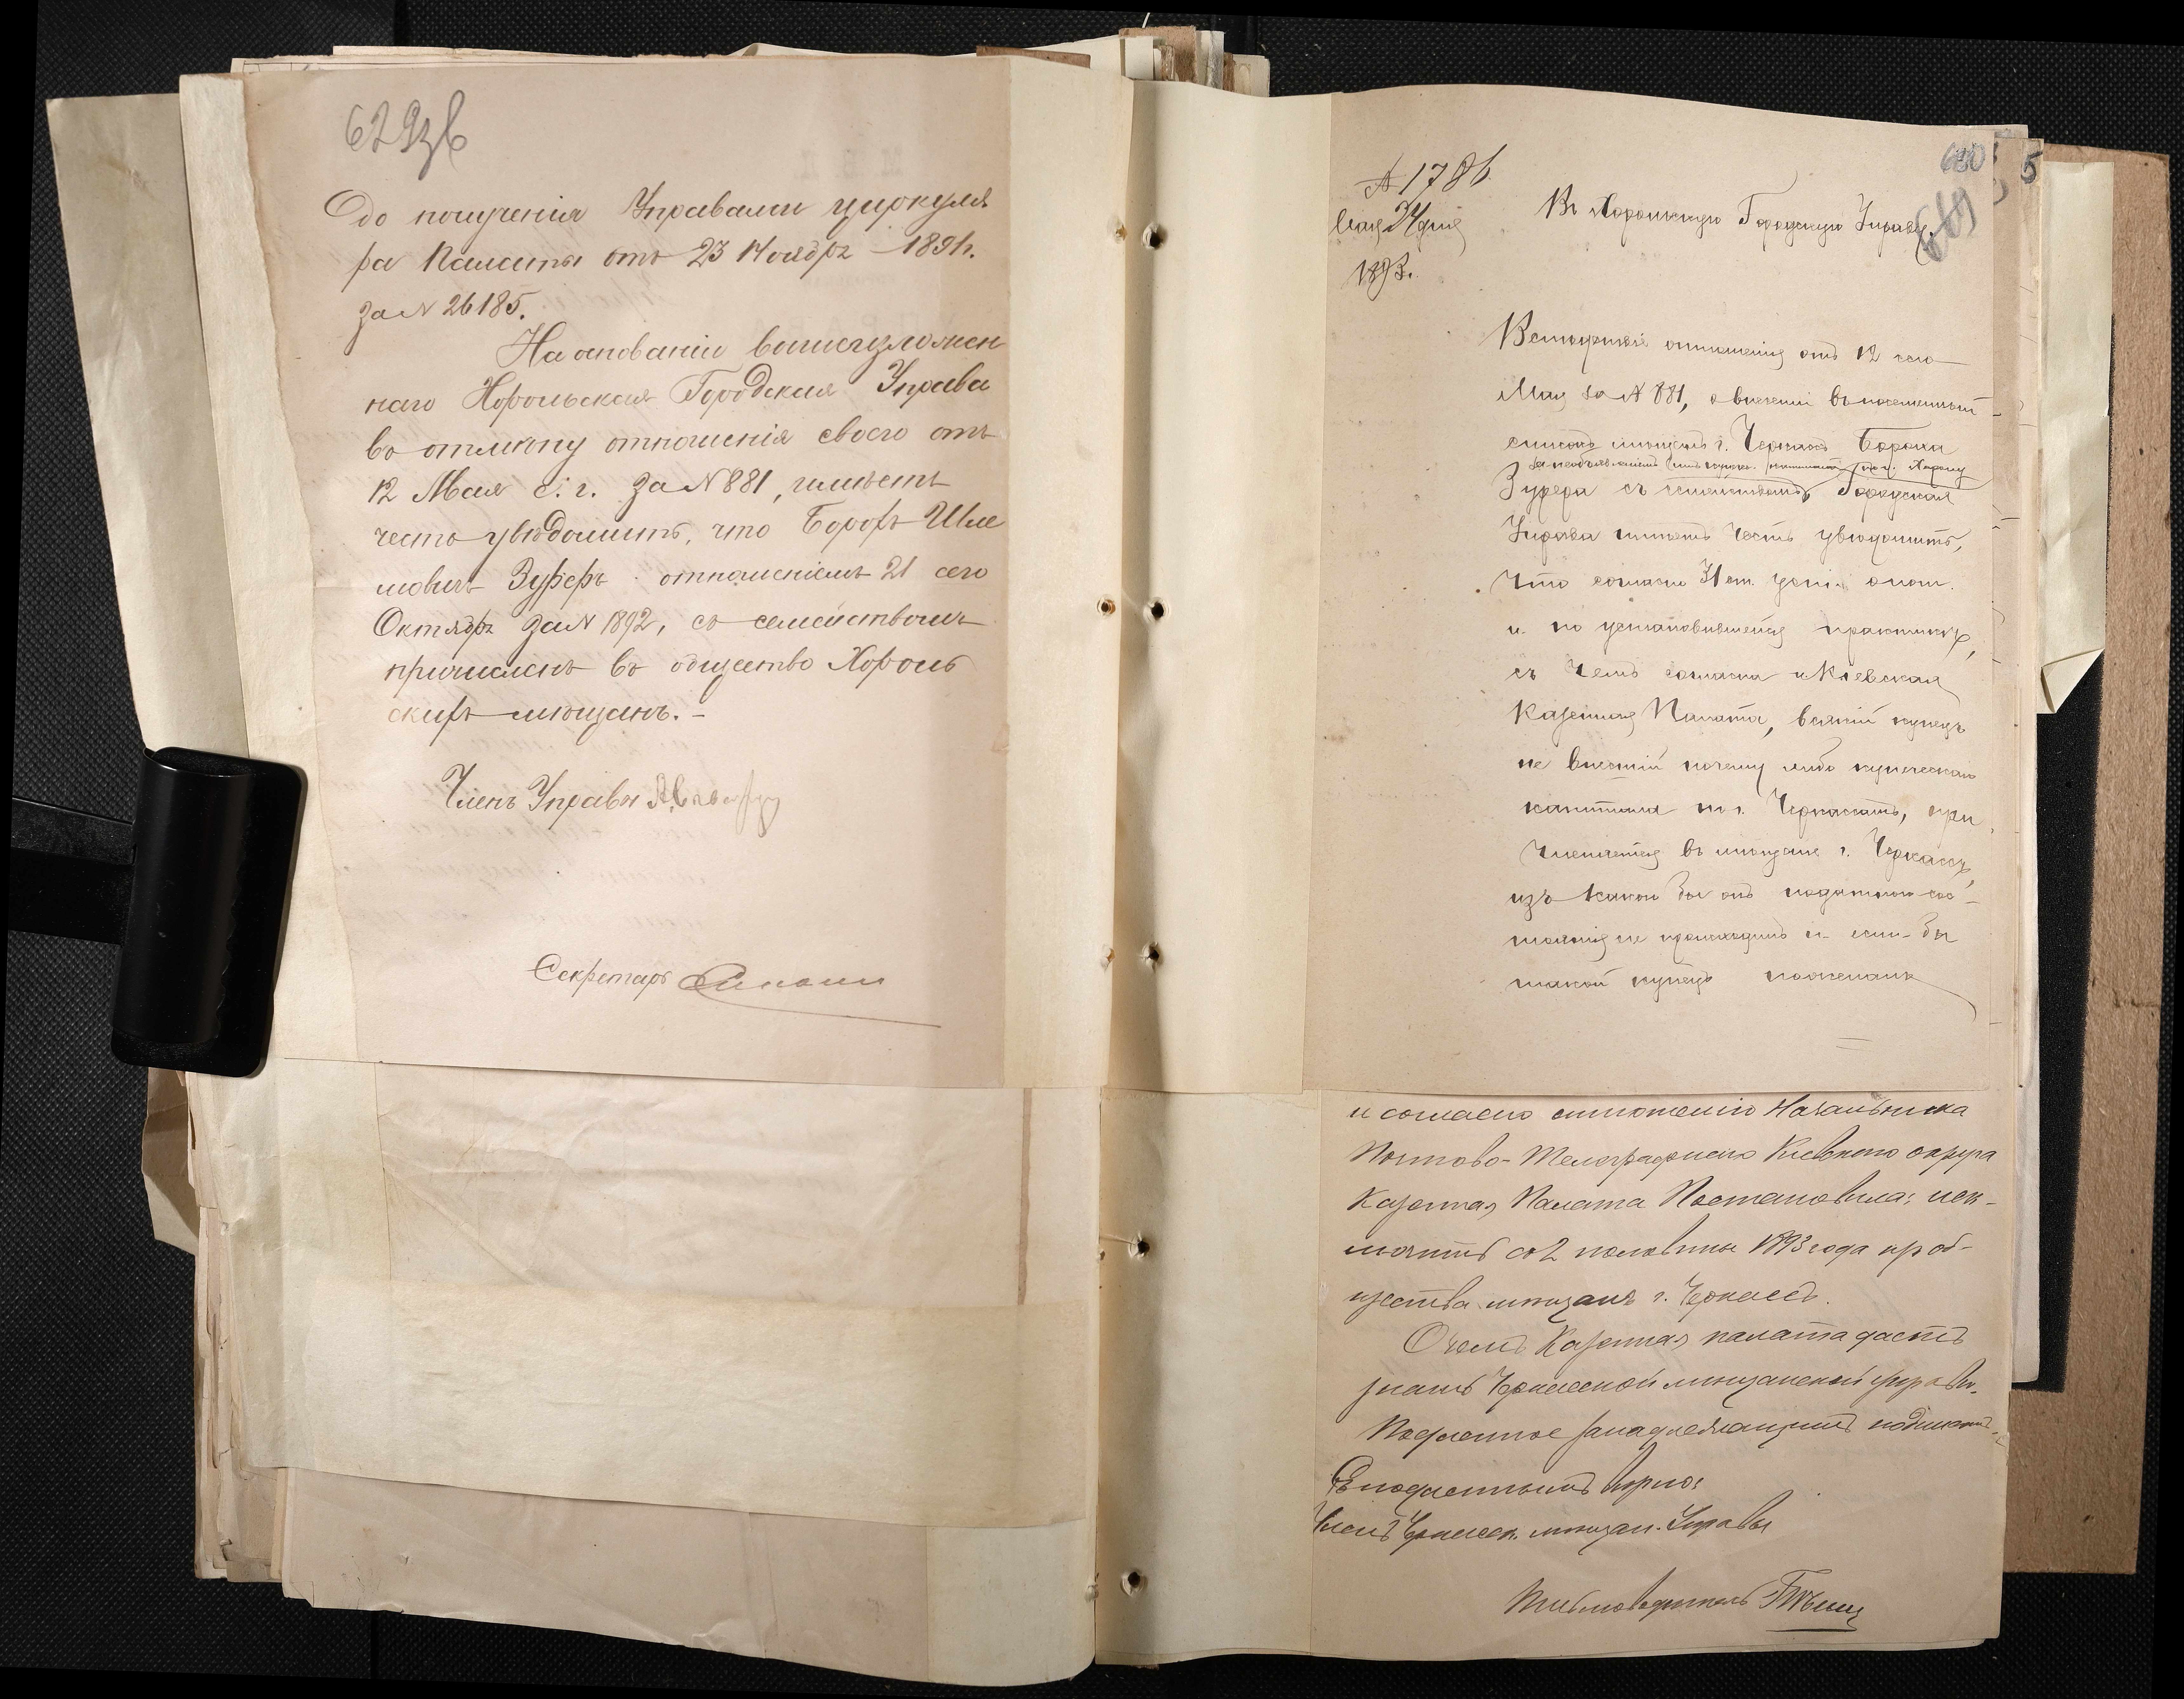 629зв
до полученія Управами циркуля
ра Палаты отъ 23 Ноября 1891г.
за № 26185.
На основаніи вышеизложен
наго Хорольская Городская Управа
въ отмѣну отношенія своего отъ
12 Мая с. г. за № 881, имѣетъ
честь увѣдомить, что Борохъ Шле
мовичъ Зуферъ отношеніемъ 21 сего
Октября за № 1892, съ семействомъ
причисленъ въ общество Хороль
скихъ мѣщанъ. -
Членъ Управы
Секретарь
630
5
689
№ 1786
Мая 24 дня
1893.
Въ Хорольскую Городскую Управу.
Вслѣдствіе отношенія отъ 12 сего
Мая за № 881, о внесеніи въ посемейный
списокъ мѣщанъ г. Черкассъ Бороха
по г. Хоролу
Зуфера съ семействомъ, Городская
Управа имѣетъ честь увѣдомить,
что согласно 31 ст.
и по установившейся практикѣ,
съ чемъ согласна и Кіевская
Казенная Палата, всякій купецъ
не внесшій почему либо купеческаго
капитала по г. Черкассамъ, при
числяется въ мѣщане г. Черкассъ,
изъ какого бы онъ податного сос-
тоянія не происходилъ и если-бы
такой купецъ пожелалъ
и согласно отношенію Начальника
Почтово-Телеграфнаго Кіевскаго округа
Казенная Палата Постановила: иск-
лючить со 2 половины 1893 года изъ об-
щества мѣщанъ г. Черкассъ.
О чемъ Казенная палата даетъ
знать Черкасской мѣщанской управѣ.
Подлинное за надлежащимъ подписомъ.
Съ подлиннымъ вѣрно:
Членъ Черкасск. мѣщан. Управы
Письмоводитель